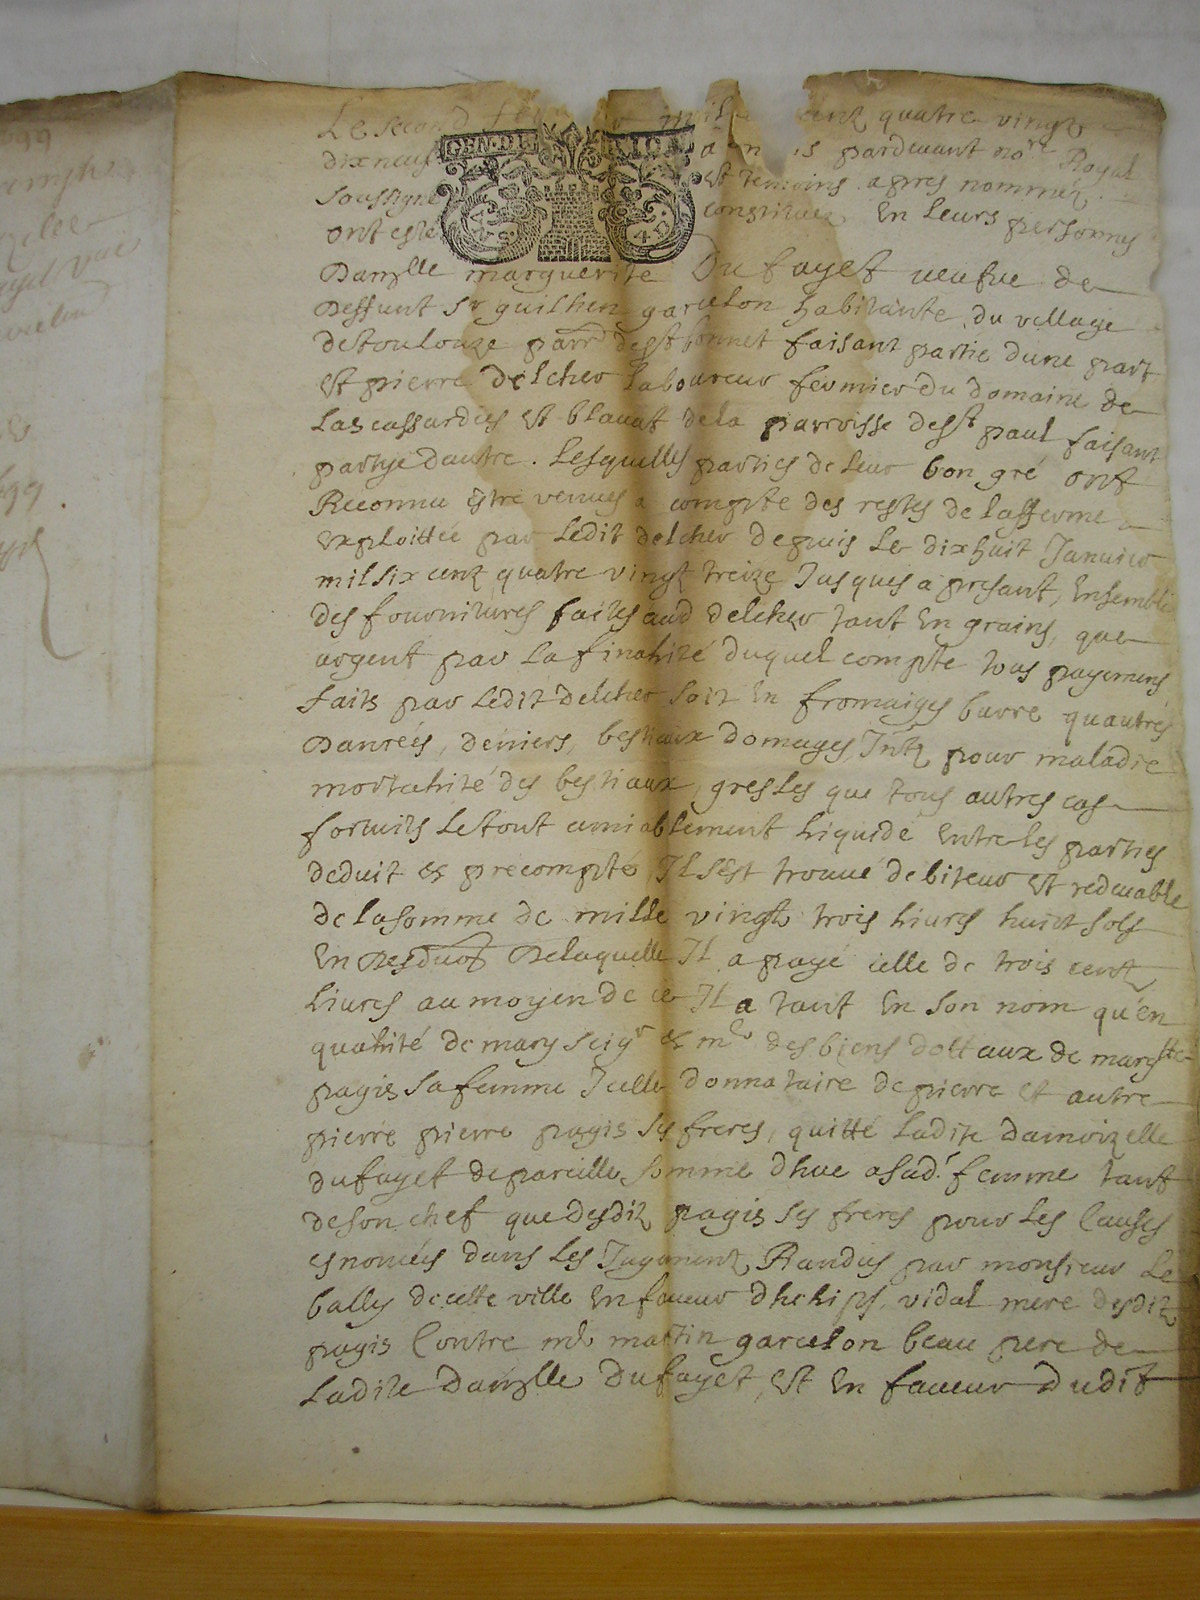 Le second mil cent quatre vingt
dix neuf pardevant no.re Royal
soussigné et temoins apres nommez
GEN.DE RIOM
ont esté constituez En leurs personnes
Damzlle marguerite Du fayet veufve de
Deffunt Sr guilhen garcelon habitante du village
de toulouze parr. de st bonnet faisant partie dune part
Et pierre delcher laboureur fermier du domaine de
Las cassardies Et blavat de la parroisse de st paul faisant
partye dautre. Lesquelles parties de leur bon gré ont
Reconnu Estre venues a compte des restes de lafferme
Exploittée par Ledit delcher depuis Le dix huit Janvier
mil six centz quatre vingtz treize Jusques a presant, Ensemble
des fournitures faites aud delcher tant En grains, que
argent par La finalité duquel compte tous payemens
faits par Ledit delcher soit En fromaiges burre quautres
Danrées, deniers, bestiaux domages Jntz pour maladie
mortalité des bestiaux, gresles que tous autres cas
fortuits Le tout amiablement liquidé Entre les parties
deduit & precompté, Il s'Est trouué debiteur Et redeuable
de la somme de mille vingtz trois liures huict sols
En Desduon Delaquelle Il a payé celle de trois centz
liures au moyen de ce Il a tant En son nom qu'en
qualité de mary seigr & me des biens dottaux de margte
pagis sa femme Icelle donnataire de pierre et autre
pierre pierre pagis ses freres, quitté Ladite damoizelle
dufayet de pareille somme dhue a sad. femme tant
de son chef que desditz pagis ses freres pour Les Causes
esnoncés dans Les Jugementz Randus par monsieur Le
bally de cette ville En faueur dhelips vidal mere desditz
pagis Contre me martin garcelon beau pere de
Ladite Damzlle Dufayet, Et En faueur Dudit